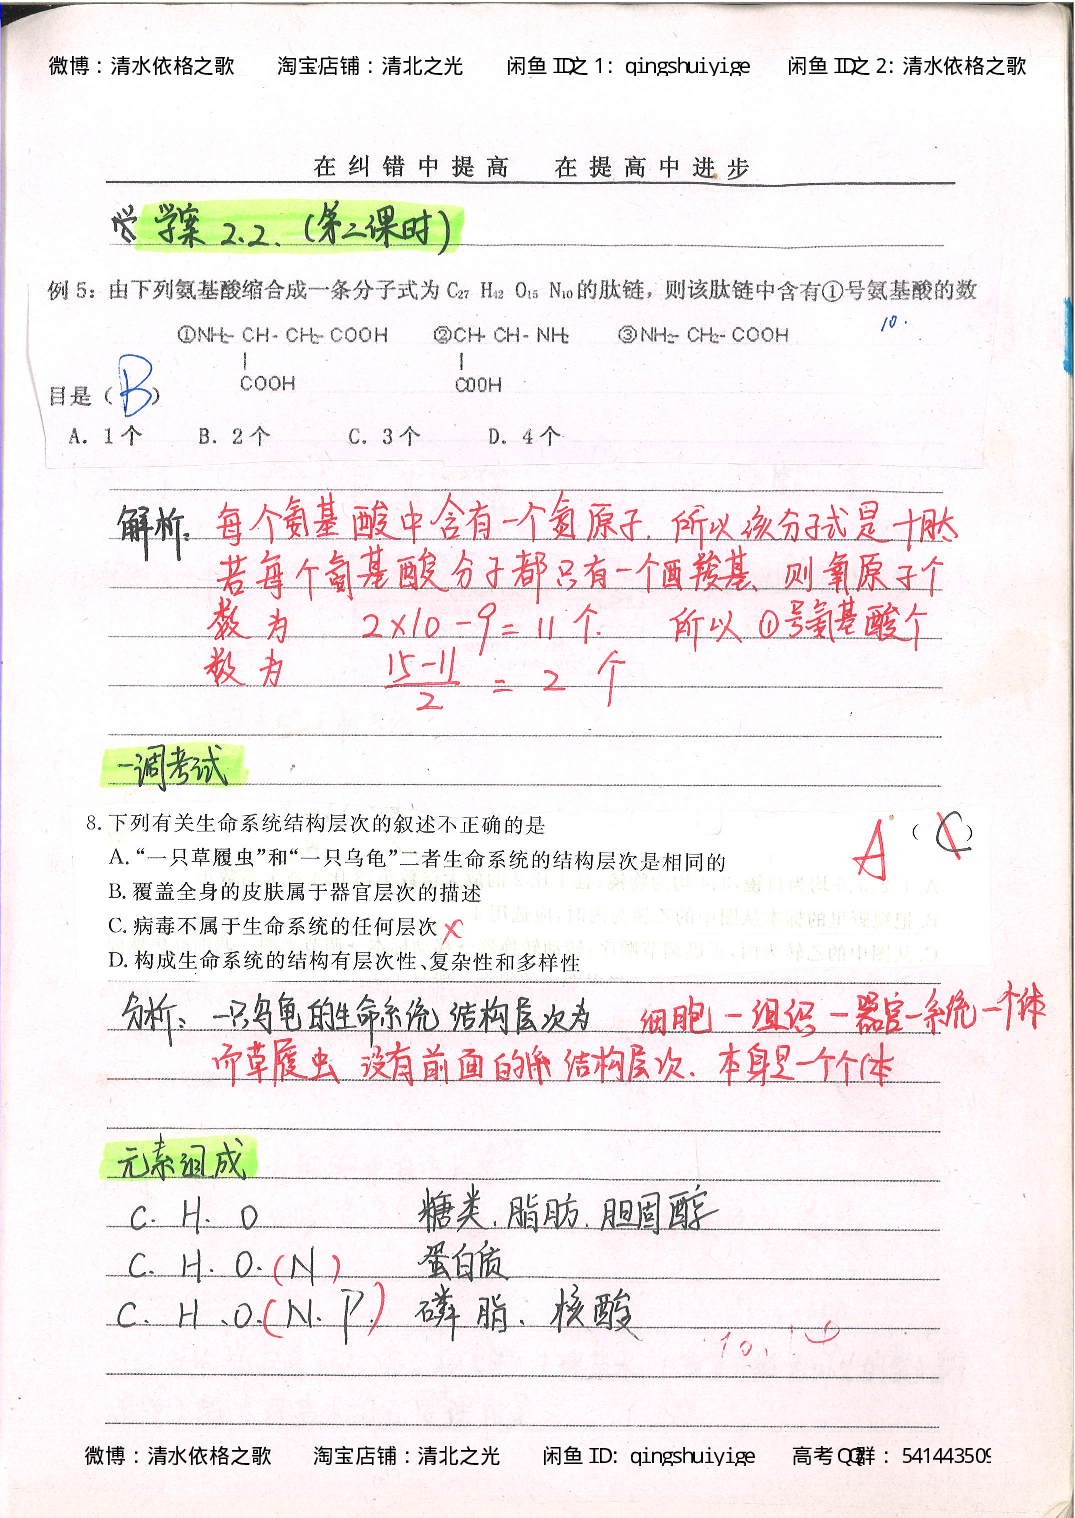 微博：清水依格之歌 淘宝店铺：清北之光 闲鱼 ID之 1：qingshuiyige 闲鱼 ID之 2：清水依格之歌
在纠错中提高 在提高中进步
学案 2.2.（第二课时）
例 5：由下列氨基酸缩合成一条分子式为 C₂₇ H₄₂ O₁₅ N₁₀的肽链，则该肽链中含有①号氨基酸的数
10.
①NH₂- CH- CH₂- COOH ②CH- CH- NH₂ ③NH₂- CH₂- COOH
COOH COOH
目是（ B ）
A. 1个 B. 2个 C. 3个 D. 4个
解析：每个氨基酸中含有一个氮原子.所以该分子式是十肽
若每个氨基酸分子都只有一个酉羧基、则氧原子个
数为 2×10-9=11个. 所以①号氨基酸个
数为 15-11/2 = 2 个
一调考试
8. 下列有关生命系统结构层次的叙述不正确的是 A （C）
A. “一只草履虫”和“一只乌龟”二者生命系统的结构层次是相同的
B. 覆盖全身的皮肤属于器官层次的描述
C. 病毒不属于生命系统的任何层次 ×
D. 构成生命系统的结构有层次性、复杂性和多样性
分析：一只乌龟的生命系统结构层次为 细胞-组织-器官-系统-个体
而草履虫 没有前面的 结构层次. 本身是一个个体
元素组成
C. H. O 糖类.脂肪.胆固醇
C. H. O.(N) 蛋白质
C. H. O.(N. P.) 磷脂、核酸
10.
微博：清水依格之歌 淘宝店铺：清北之光 闲鱼 ID：qingshuiyige 高考QQ群：541443509